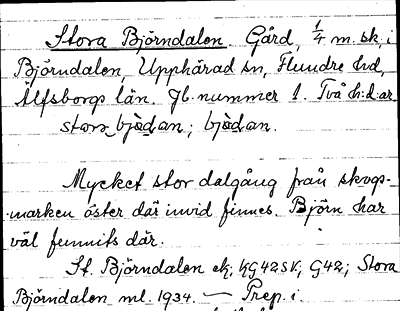 Stora Björndalen Gård, 1/4 m. sk. i
Björndalen, Upphärad sn, Flundre hd,
Älfsborgs län. Jb. nummer 1. Två ch:d:ar
stora bjödan; bjödan.
Mycket stor dalgång från skogs-
marken öster där invid finnes. Björn har
väl funnits där.
St. Björndalen ek, KG42SV, G42; Stora
Björndalen ml. 1934. — Prep. i.